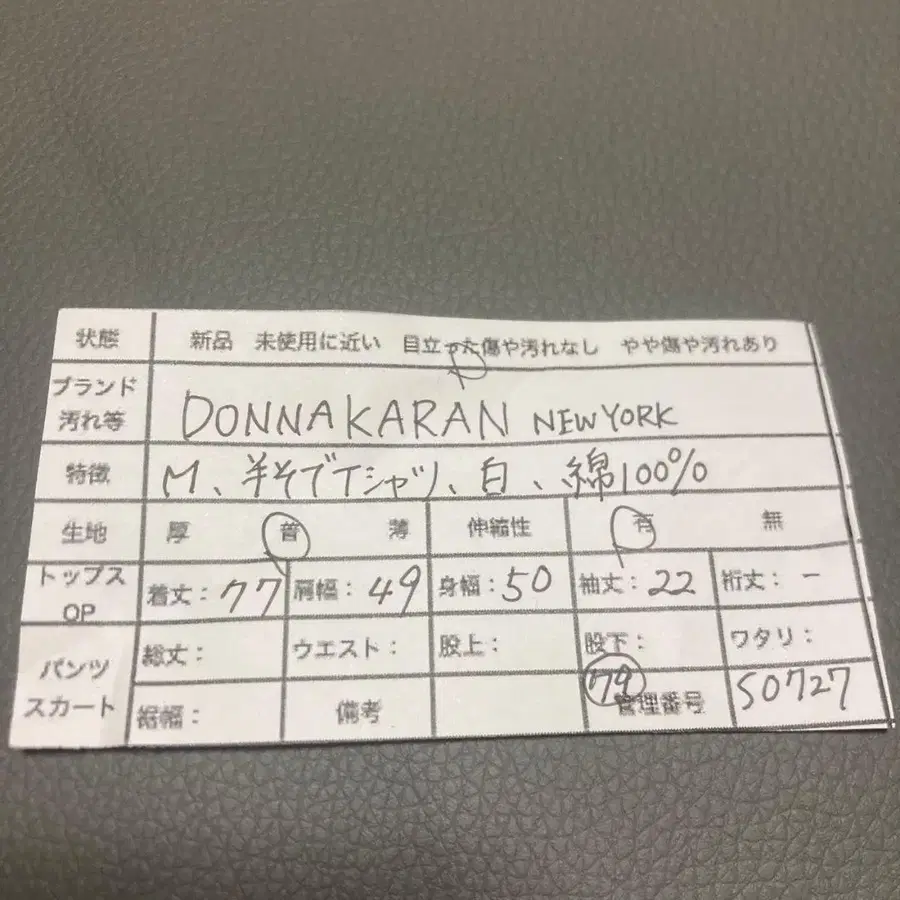 状態 新品 未使用に近い 目立った傷や汚れなし やや傷や汚れあり
ブランド
汚れ等 DONNAKARAN NEWYORK
特徴 M、半そでTシャツ、白、綿100%
生地 厚 普 薄 伸縮性 有 無
トップス
OP 着丈：77 肩幅：49 身幅：50 袖丈：22 裄丈：-
パンツ
スカート 総丈： ウエスト： 股上： 股下： ワタリ：
裾幅： 備考 79 管理番号 S0727